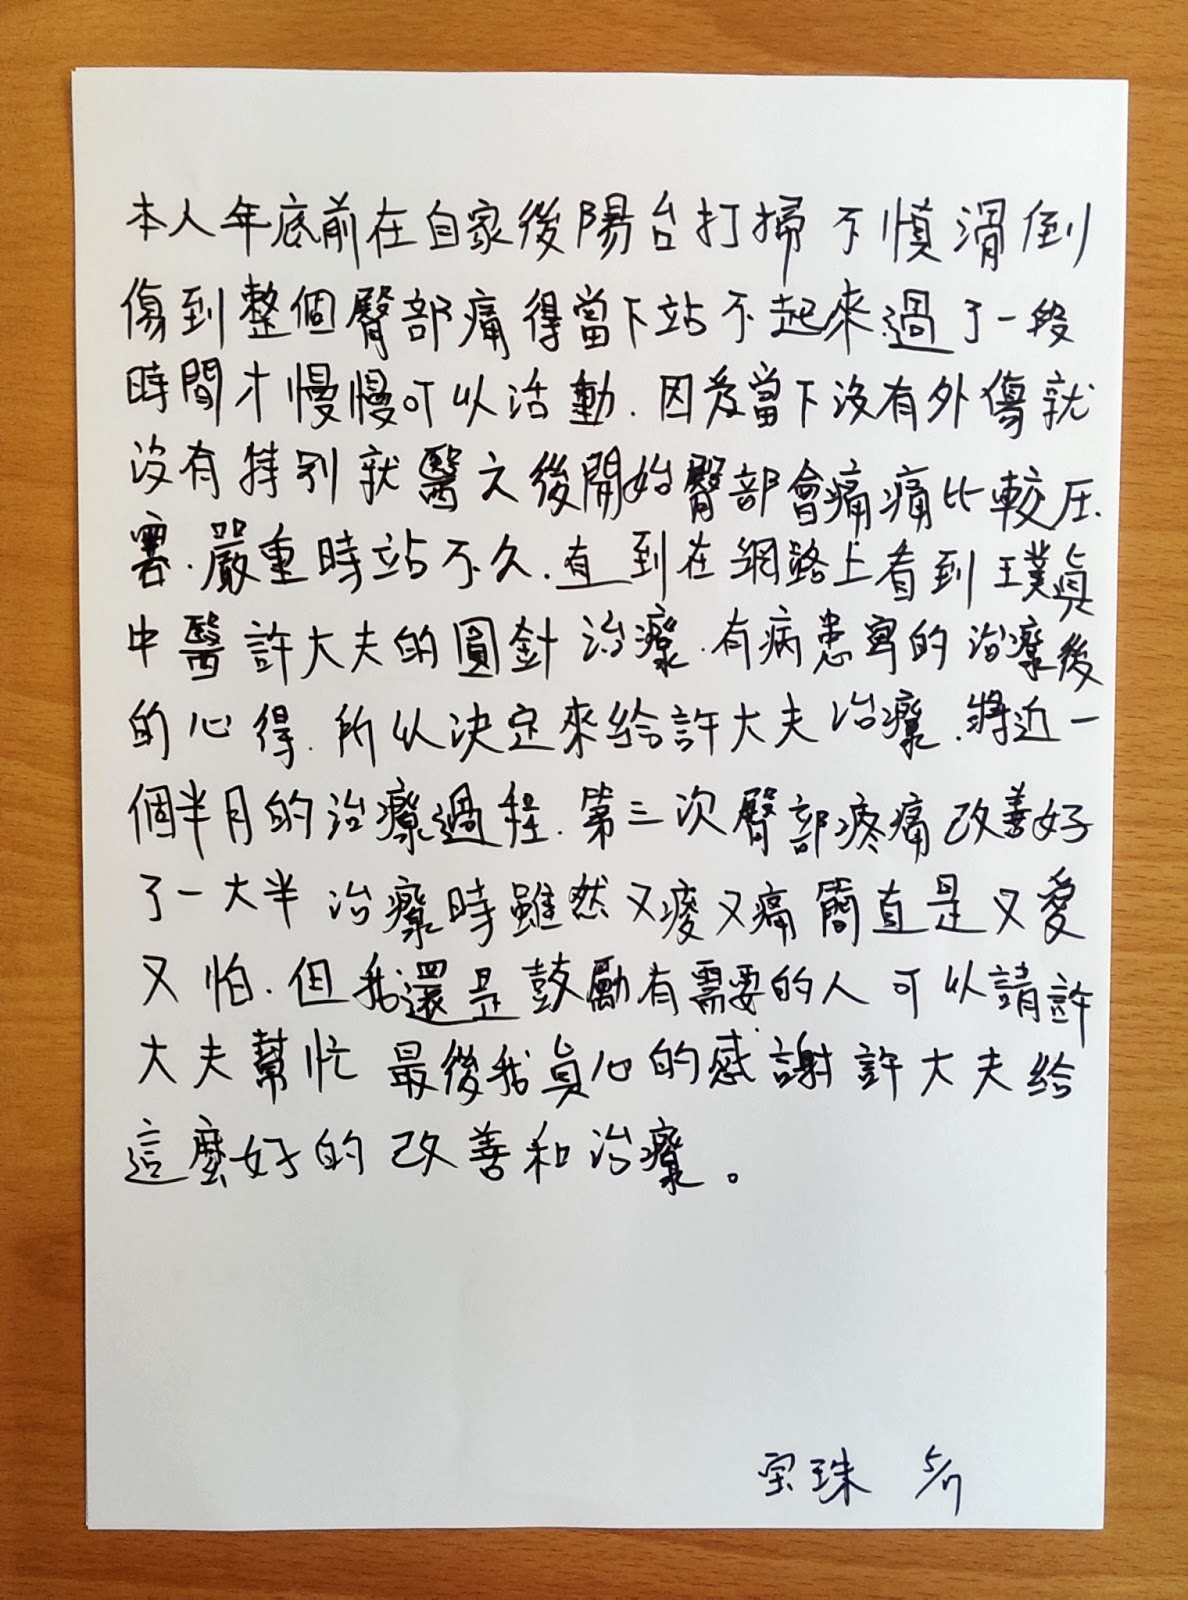 本人年底前在自家後陽台打掃不慎滑倒
傷到整個臀部痛得當下站不起來.過了一段
時間才慢慢可以活動.因為當下沒有外傷就
沒有特別就醫之後開始臀部會痛痛比較压.
害.嚴重時站不久.直到在網路上看到璞真
中醫許大夫的圓針治療.有病患寫的治療後
的心得.所以決定來給許大夫治療.將近一
個半月的治療過程.第三次臀部疼痛改善好
了一大半治療時雖然又痠又痛簡直是又愛
又怕.但我還是鼓勵有需要的人可以請許
大夫幫忙最後我真心的感謝許大夫給
這麼好的改善和治療。
宝珠 5/17